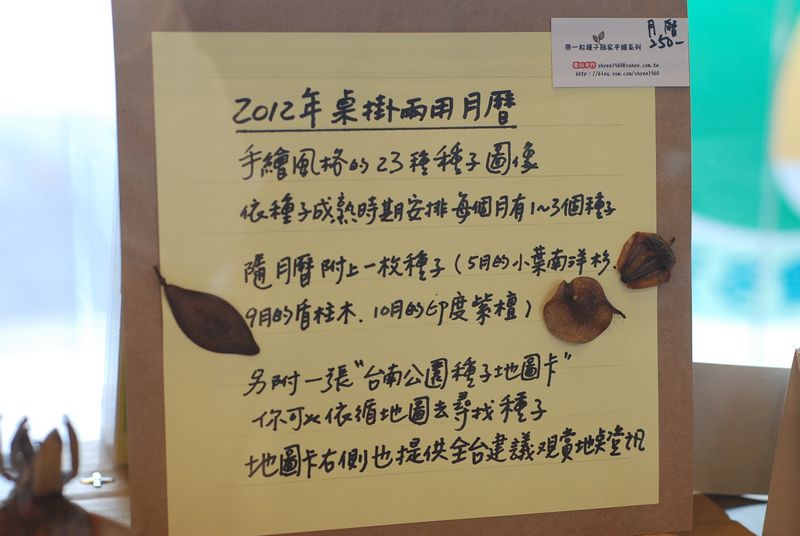 帶一粒種子回家手繪系列
月曆
250-
yhyea1960@yahoo.com.tw
http://blog.yam.com/yhyea1960
2012年桌掛兩用月曆
手繪風格的23種種子圖像
依種子成熟時期安排每個月有1~3個種子
隨月曆附上一枚種子(5月的小葉南洋杉.
9月的盾柱木.10月的印度紫檀)
另附一張"台南公園種子地圖卡"
你可以依循地圖去尋找種子
地圖卡右側也提供全台建議观賞地點資訊